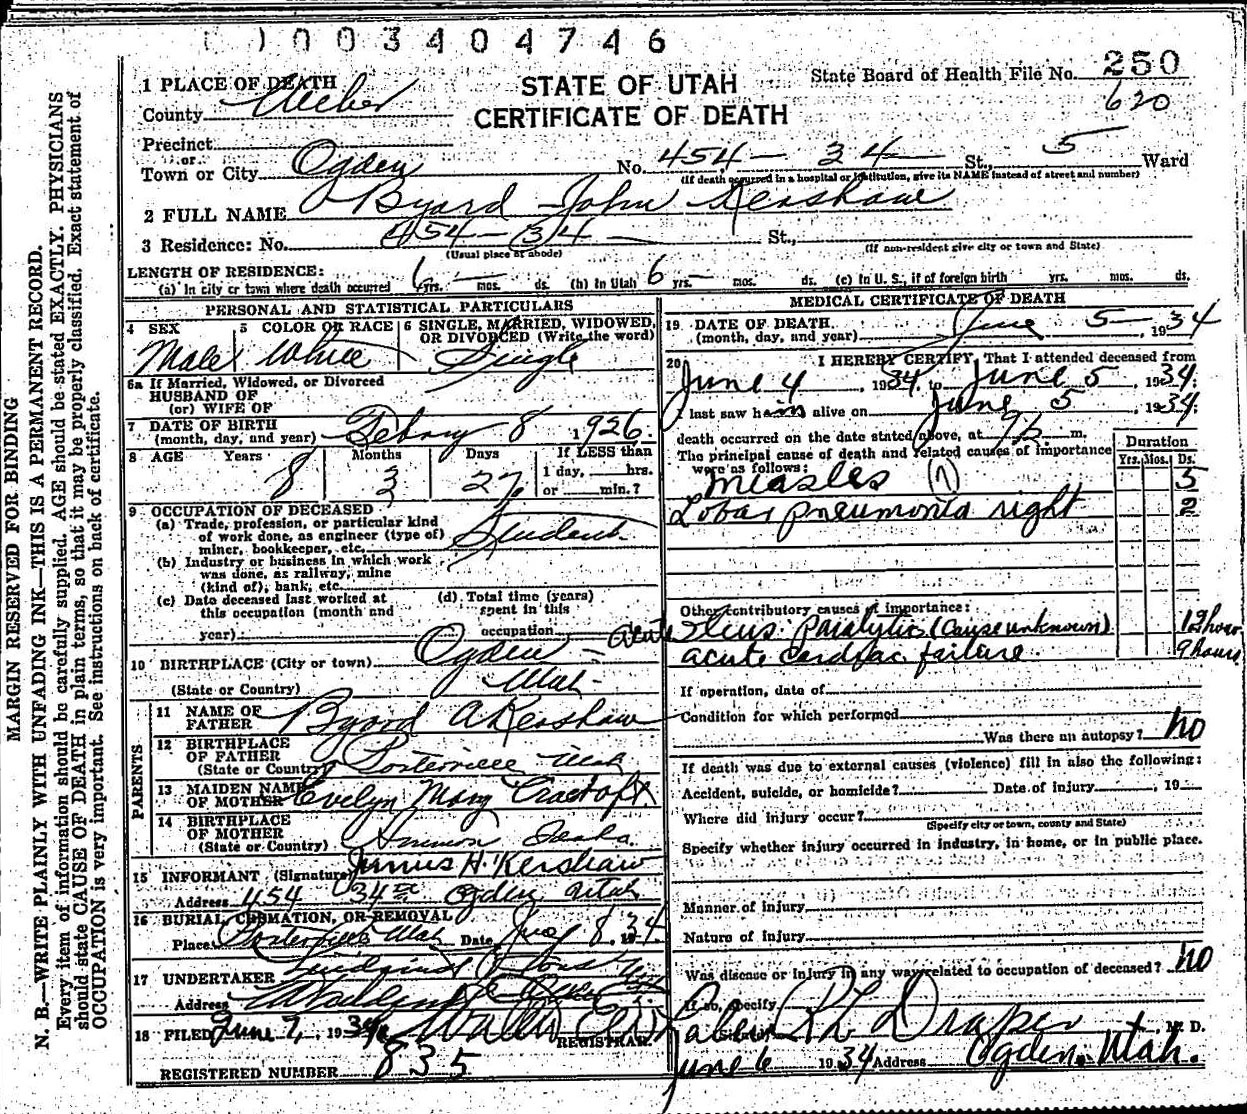 0003404746
MARGIN RESERVED FOR BINDING
N. B.—WRITE PLAINLY WITH UNFADING INK—THIS IS A PERMANENT RECORD.
Every item of information should be carefully supplied. AGE should be stated EXACTLY. PHYSICIANS
should state CAUSE OF DEATH in plain terms, so that it may be properly classified. Exact statement of
OCCUPATION is very important. See instructions on back of certificate.
STATE OF UTAH
CERTIFICATE OF DEATH
State Board of Health File No. 250
620
1 PLACE OF DEATH
County Weber
Precinct
or
Town or City Ogden No. 454 - 34 St., 5 Ward
(If death occurred in a hospital or institution, give its NAME instead of street and number)
2 FULL NAME Byard John Kershaw
3 Residence: No. 454 - 34 St.,
(Usual place of abode) (If non-resident give city or town and State)
LENGTH OF RESIDENCE:
(a) In city or town where death occurred 6 yrs. mos. ds. (b) In Utah 6 yrs. mos. ds. (c) In U. S., if of foreign birth yrs. mos. ds.
PERSONAL AND STATISTICAL PARTICULARS
4 SEX Male
5 COLOR OR RACE White
6 SINGLE, MARRIED, WIDOWED, OR DIVORCED (Write the word) Single
6a If Married, Widowed, or Divorced
HUSBAND OF
(or) WIFE OF
7 DATE OF BIRTH
(month, day, and year) Febry 8 1926
8 AGE Years 8 Months 3 Days 27 If LESS than
1 day, hrs.
or min.?
9 OCCUPATION OF DECEASED
(a) Trade, profession, or particular kind
of work done, as engineer (type of)
miner, bookkeeper, etc. Student
(b) Industry or business in which work
was done, as railway, mine
(kind of), bank, etc.
(c) Date deceased last worked at
this occupation (month and
year)
(d) Total time (years)
spent in this
occupation
10 BIRTHPLACE (City or town) Ogden
(State or Country) Utah
PARENTS
11 NAME OF
FATHER Byard A Kershaw
12 BIRTHPLACE
OF FATHER
(State or Country) Porterville Utah
13 MAIDEN NAME
OF MOTHER Evelyn Mary Cracroft
14 BIRTHPLACE
OF MOTHER
(State or Country) Ammon Idaho
15 INFORMANT (Signature) Junius H. Kershaw
Address 454 34th Ogden Utah
16 BURIAL, CREMATION, OR REMOVAL
Place Porterville Utah Date June 8, 1934
17 UNDERTAKER
Address
18 FILED June 7, 1934
REGISTRAR
REGISTERED NUMBER 835
MEDICAL CERTIFICATE OF DEATH
19 DATE OF DEATH
(month, day, and year) June 5 1934
20 I HEREBY CERTIFY, That I attended deceased from
June 4, 1934, to June 5, 1934;
I last saw him alive on June 5, 1934;
death occurred on the date stated above, at m.
The principal cause of death and related causes of importance
were as follows:
Duration
Yrs. Mos. Ds.
Measles 5
Lobar pneumonia right 2
Other contributory causes of importance:
acute Ileus: paralytic (cause unknown) 12 hour
acute cardiac failure. 9 hours
If operation, date of
Condition for which performed
Was there an autopsy? no
If death was due to external causes (violence) fill in also the following:
Accident, suicide, or homicide? Date of injury , 19
Where did injury occur?
(Specify city or town, county and State)
Specify whether injury occurred in industry, in home, or in public place.
Manner of injury
Nature of injury
Was disease or injury in any way related to occupation of deceased? no
If so, specify
(Signed) Draper, M. D.
June 6 1934 Address Ogden, Utah.